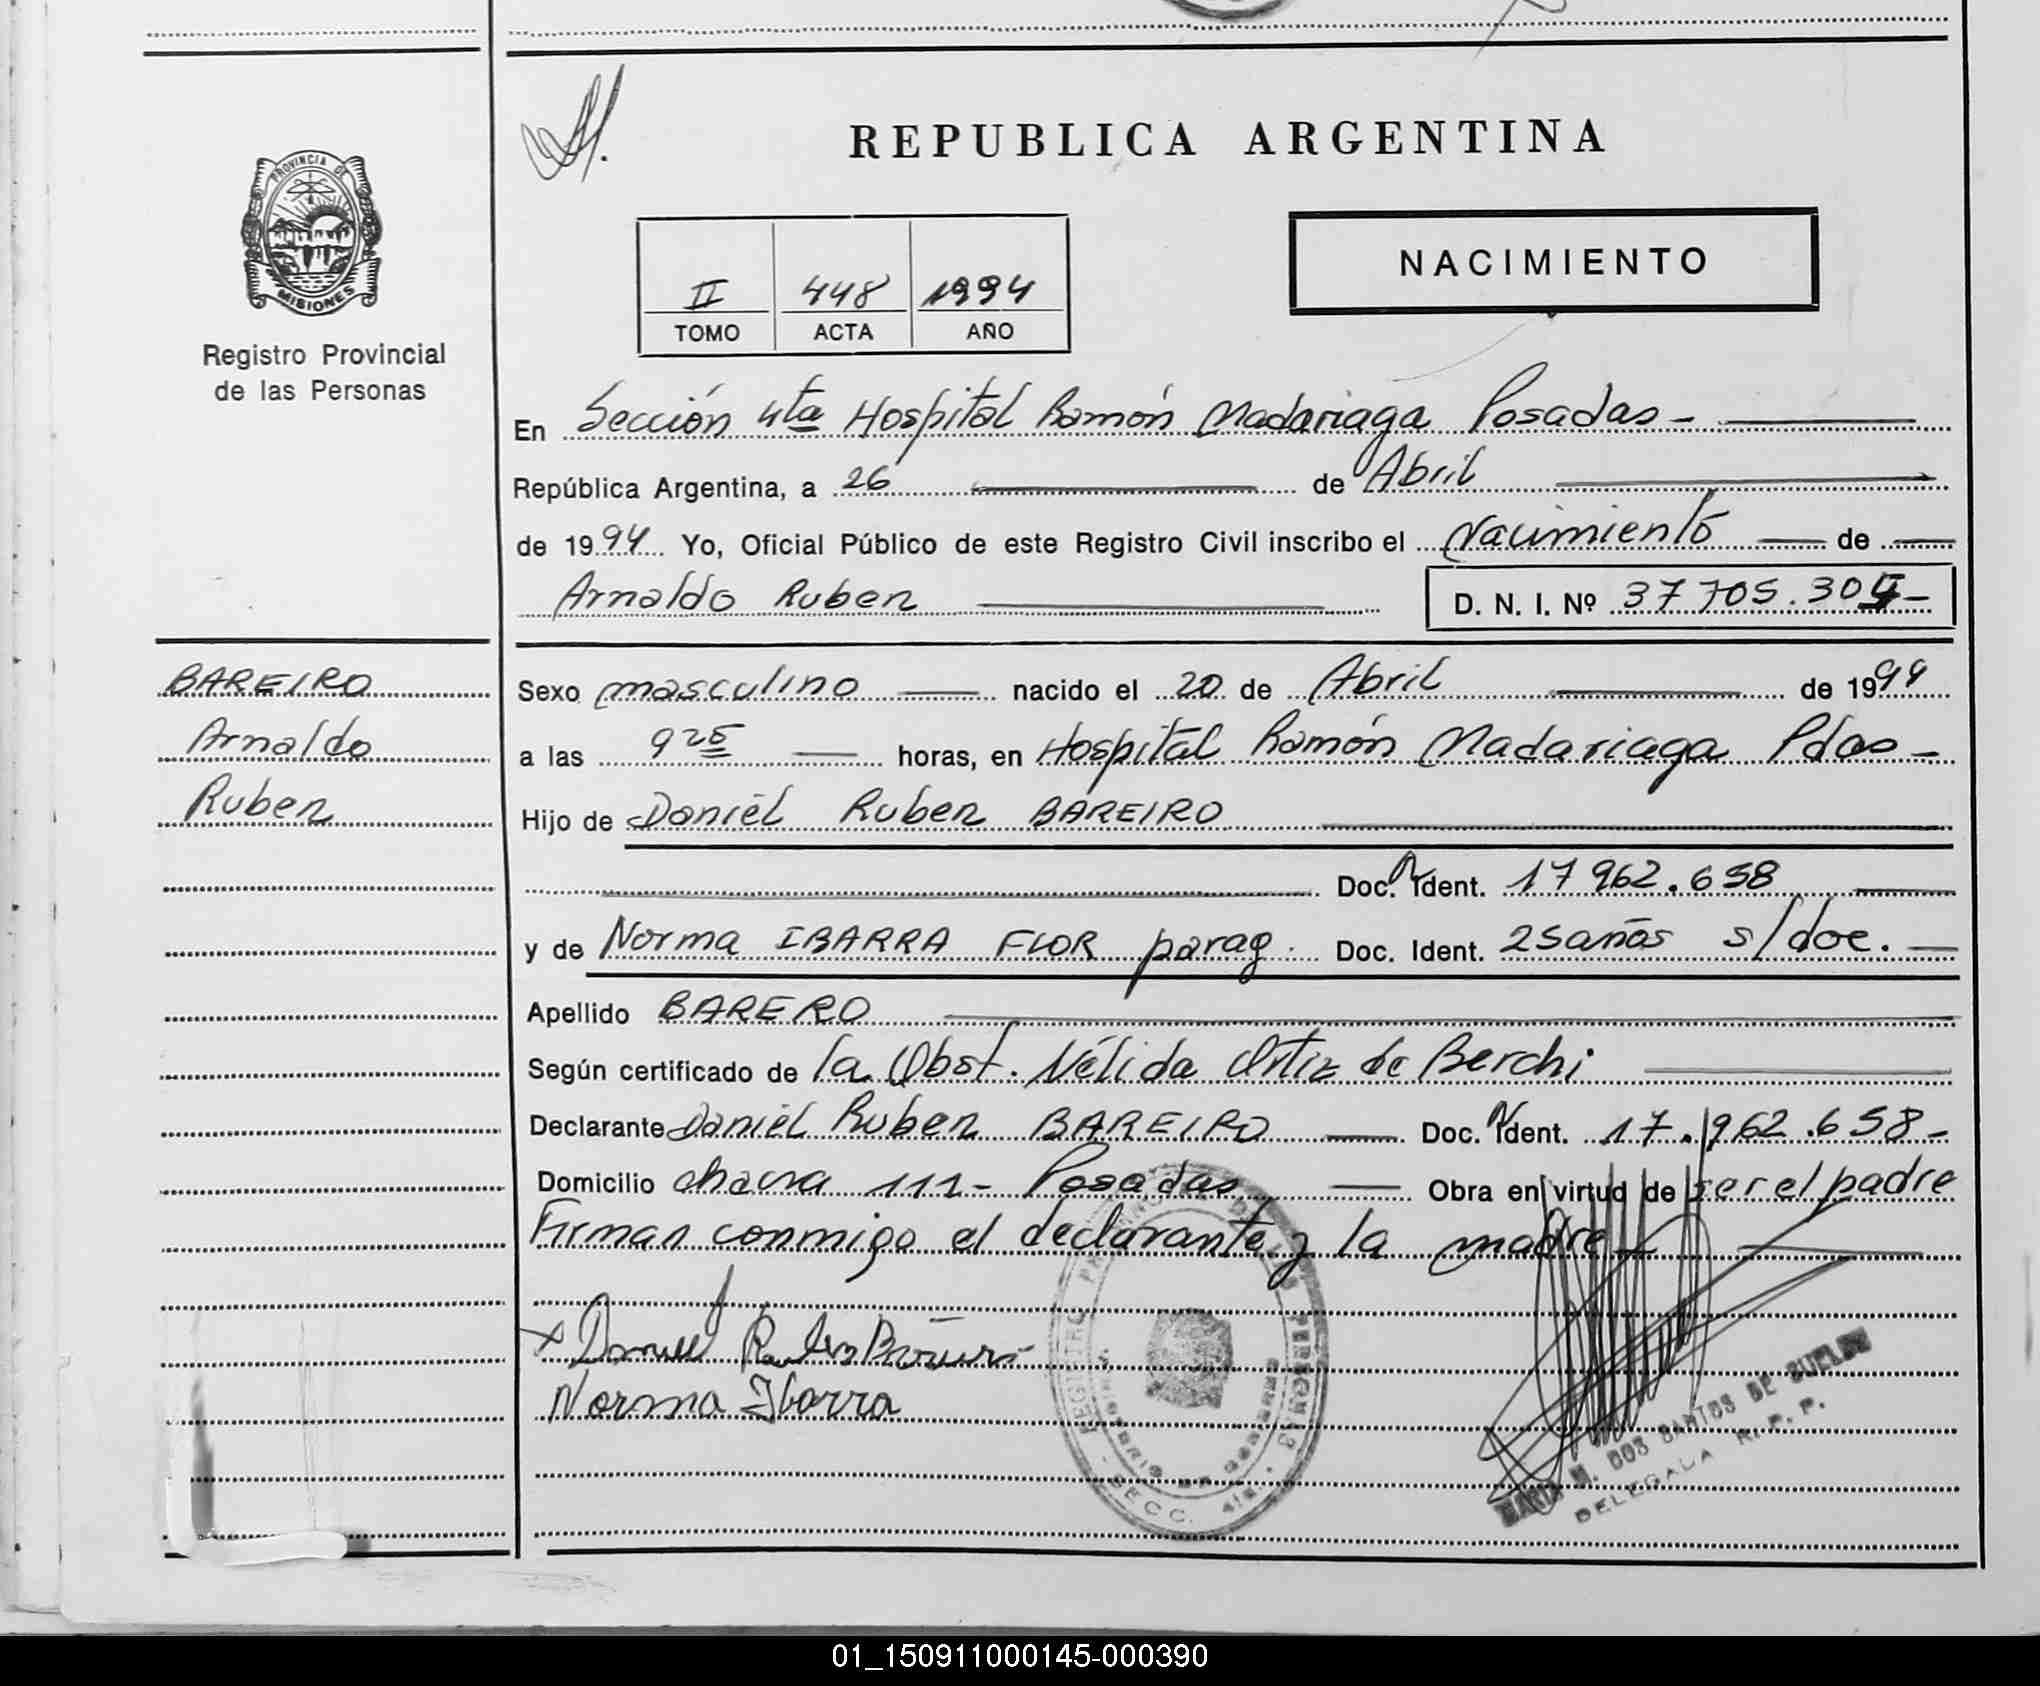 REPUBLICA ARGENTINA
PROVINCIA DE
MISIONES
Registro Provincial
de las Personas
NACIMIENTO
II 448 1994
TOMO ACTA AÑO
En Sección 4ta Hospital Ramón Madariaga Posadas -
República Argentina, a 26 de Abril
de 1994 Yo, Oficial Público de este Registro Civil inscribo el Nacimiento de
Arnaldo Ruben D. N. I. Nº 37 705.30
BAREIRO
Arnaldo
Ruben
Sexo masculino nacido el 20 de Abril de 1994
a las 9 25 horas, en Hospital Ramón Madariaga Pdas -
Hijo de Daniel Ruben BAREIRO
Doc. Ident. 17 962.658
y de Norma IBARRA FLOR parag. Doc. Ident. 25 años s/doc.
Apellido BARERO
Según certificado de la Obst. Nélida Ortiz de Berchi
Declarante Daniel Ruben BAREIRO Doc. Ident. 17.962.658 -
Domicilio chacra 111 - Posadas Obra en virtud de ser el padre
Firman conmigo el declarante y la madre
Daniel Ruben Bareiro
Norma Ibarra
REGISTRO PERSONAS
SECC. 4ta.
M. DOS SANTOS DE
DELEGADA R. P. P.
01_150911000145-000390